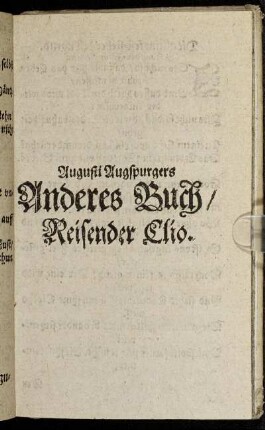 Augusti Augspurgers
Anderes Buch /
Reisender Clio.